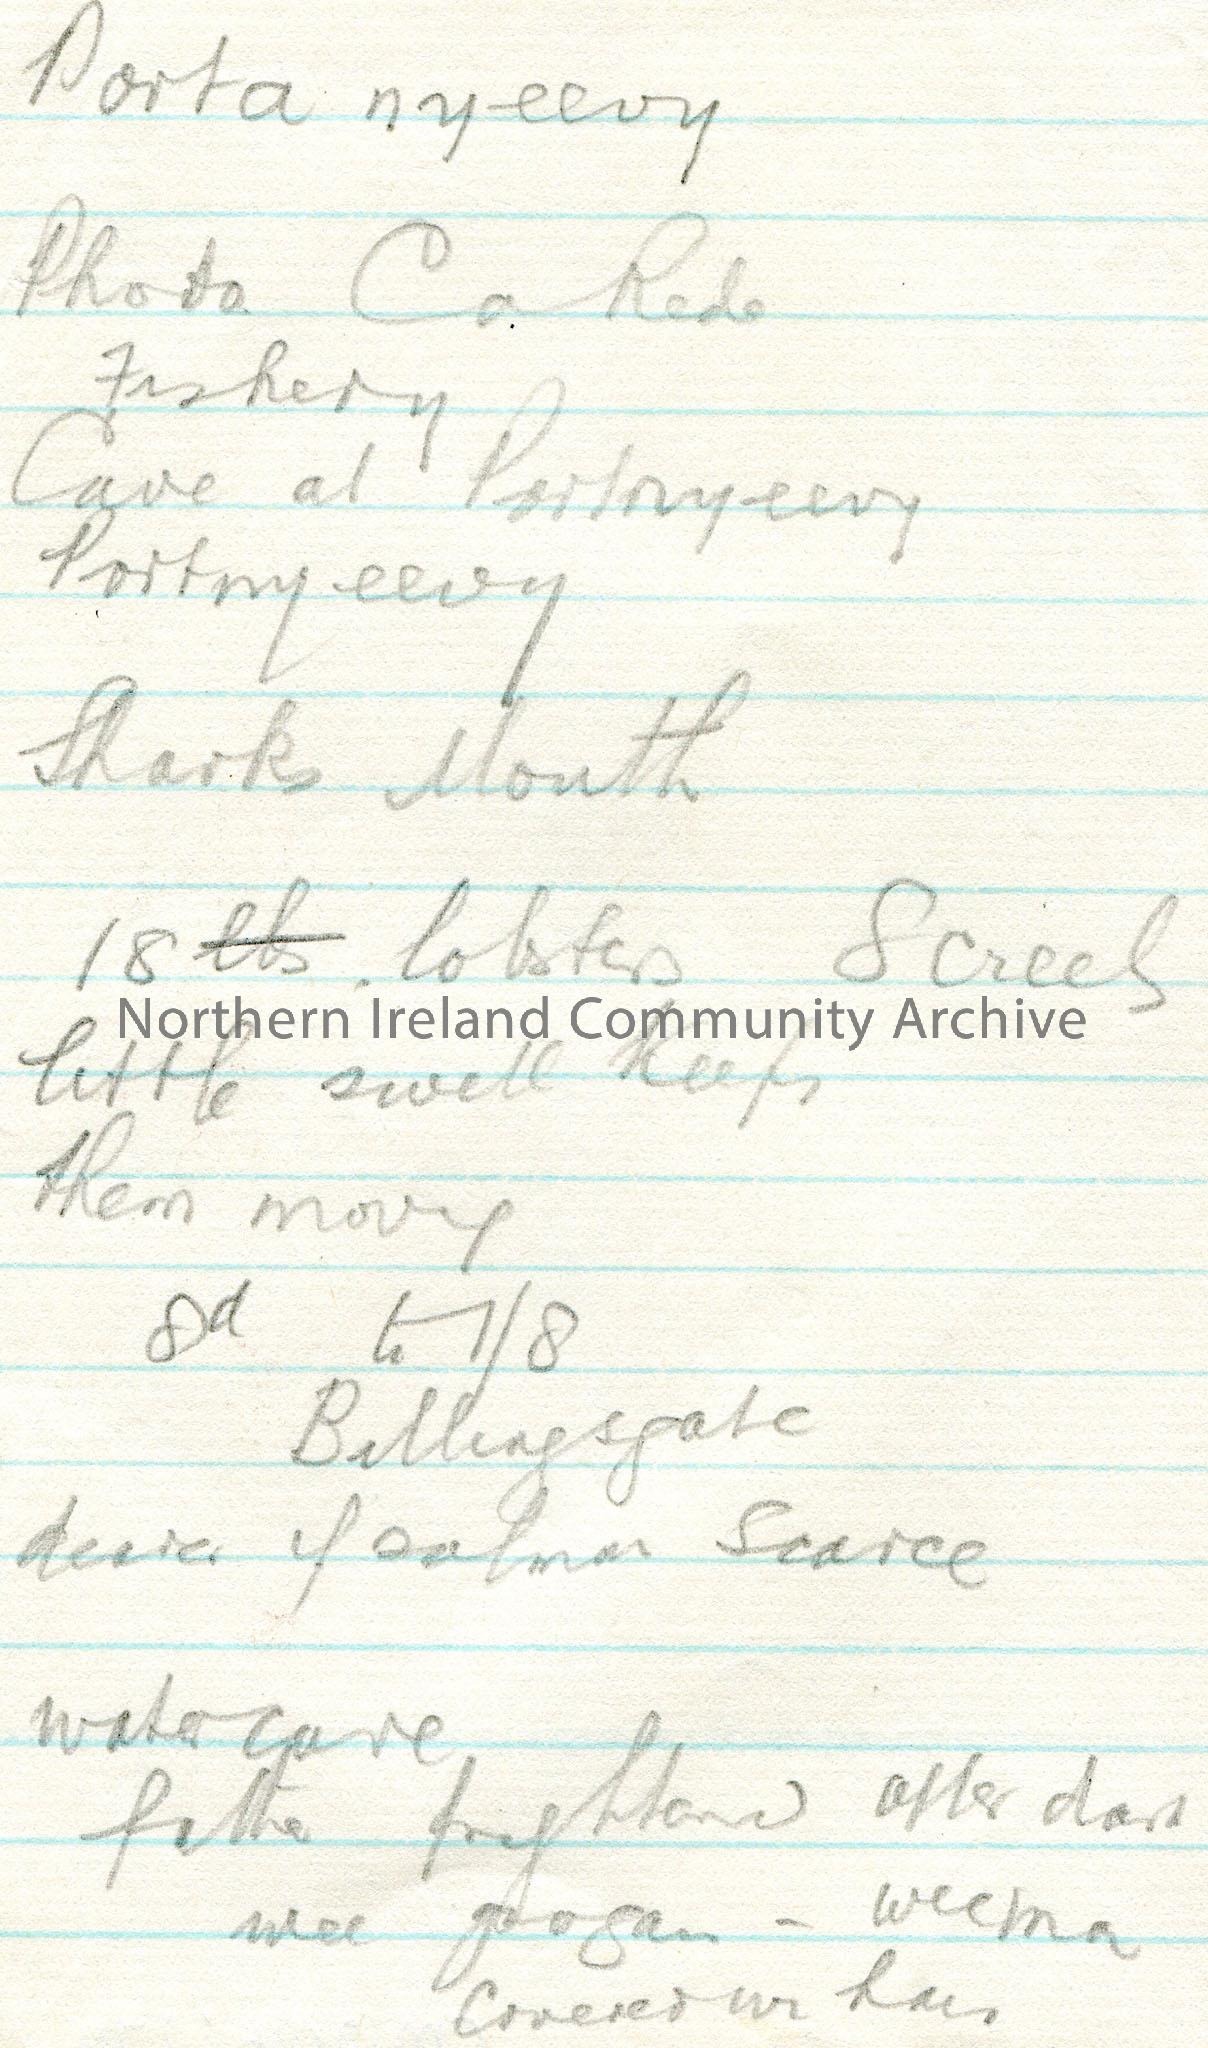 Porta nyeevy
Photo Ca Rede
Fishery
Cave at Portnyeevy
Portnyeevy
Sharks Mouth
18 lbs. lobsters Screels
Northern Ireland Community Archive
little swell keeps
them moving
8d to 1/8
Billingsgate
dearer if salmon Scarce
watercave
father frightened after dark
wee grogan - wee man
Covered in hair